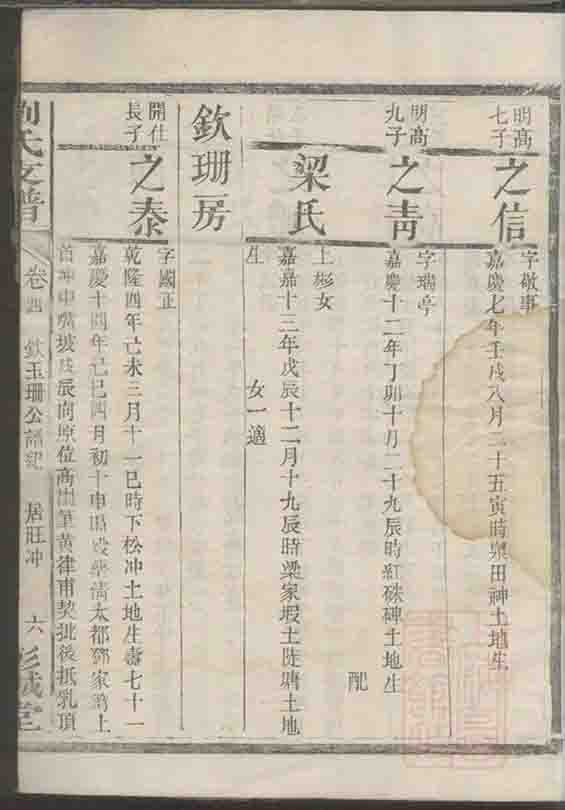 明高七子
之信
字敬事
嘉慶七年壬戌八月二十五寅時泉田神土地生
明高九子
之青
字瑞亭
嘉慶十二年丁卯十月二十九辰時紅硃碑土地生
配
梁氏
上彬女
嘉嘉十三年戊辰十二月十九辰時梁家塅土陡塘土地
生
女一適
欽珊房
開仕長子
之泰
字國正
乾隆四年己未三月十一巳時下松冲土地生壽七十一
嘉慶十四年己巳四月初十申時歿樂清太都鄧家灣上
首冲中嘴坡戌辰向原位高出筆黄律甫契批後抵乳頂
劉氏支譜
卷四
欽玉珊公譜記
居旺冲
六
彭城堂